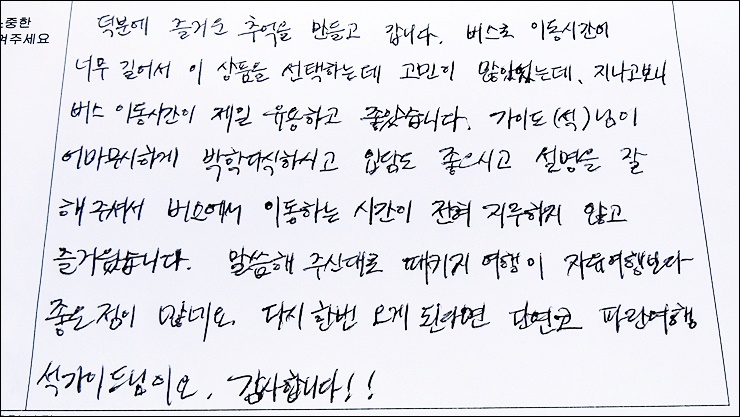 소중한
겨주세요
덕분에 즐거운 추억을 만들고 갑니다. 버스로 이동시간이
너무 길어서 이 상품을 선택하는데 고민이 많았었는데, 지나고보니
버스 이동시간이 제일 유용하고 좋았습니다. 가이드(석)님이
어마무시하게 박학다식하시고 입담도 좋으시고 설명을 잘
해주셔서 버스에서 이동하는 시간이 전혀 지루하지 않고
즐거웠습니다. 말씀해 주신대로 패키지 여행이 자유여행보다
좋은점이 많네요. 다시 한번 오게 된다면 단연코 파란여행
석가이드님이오. 감사합니다!!